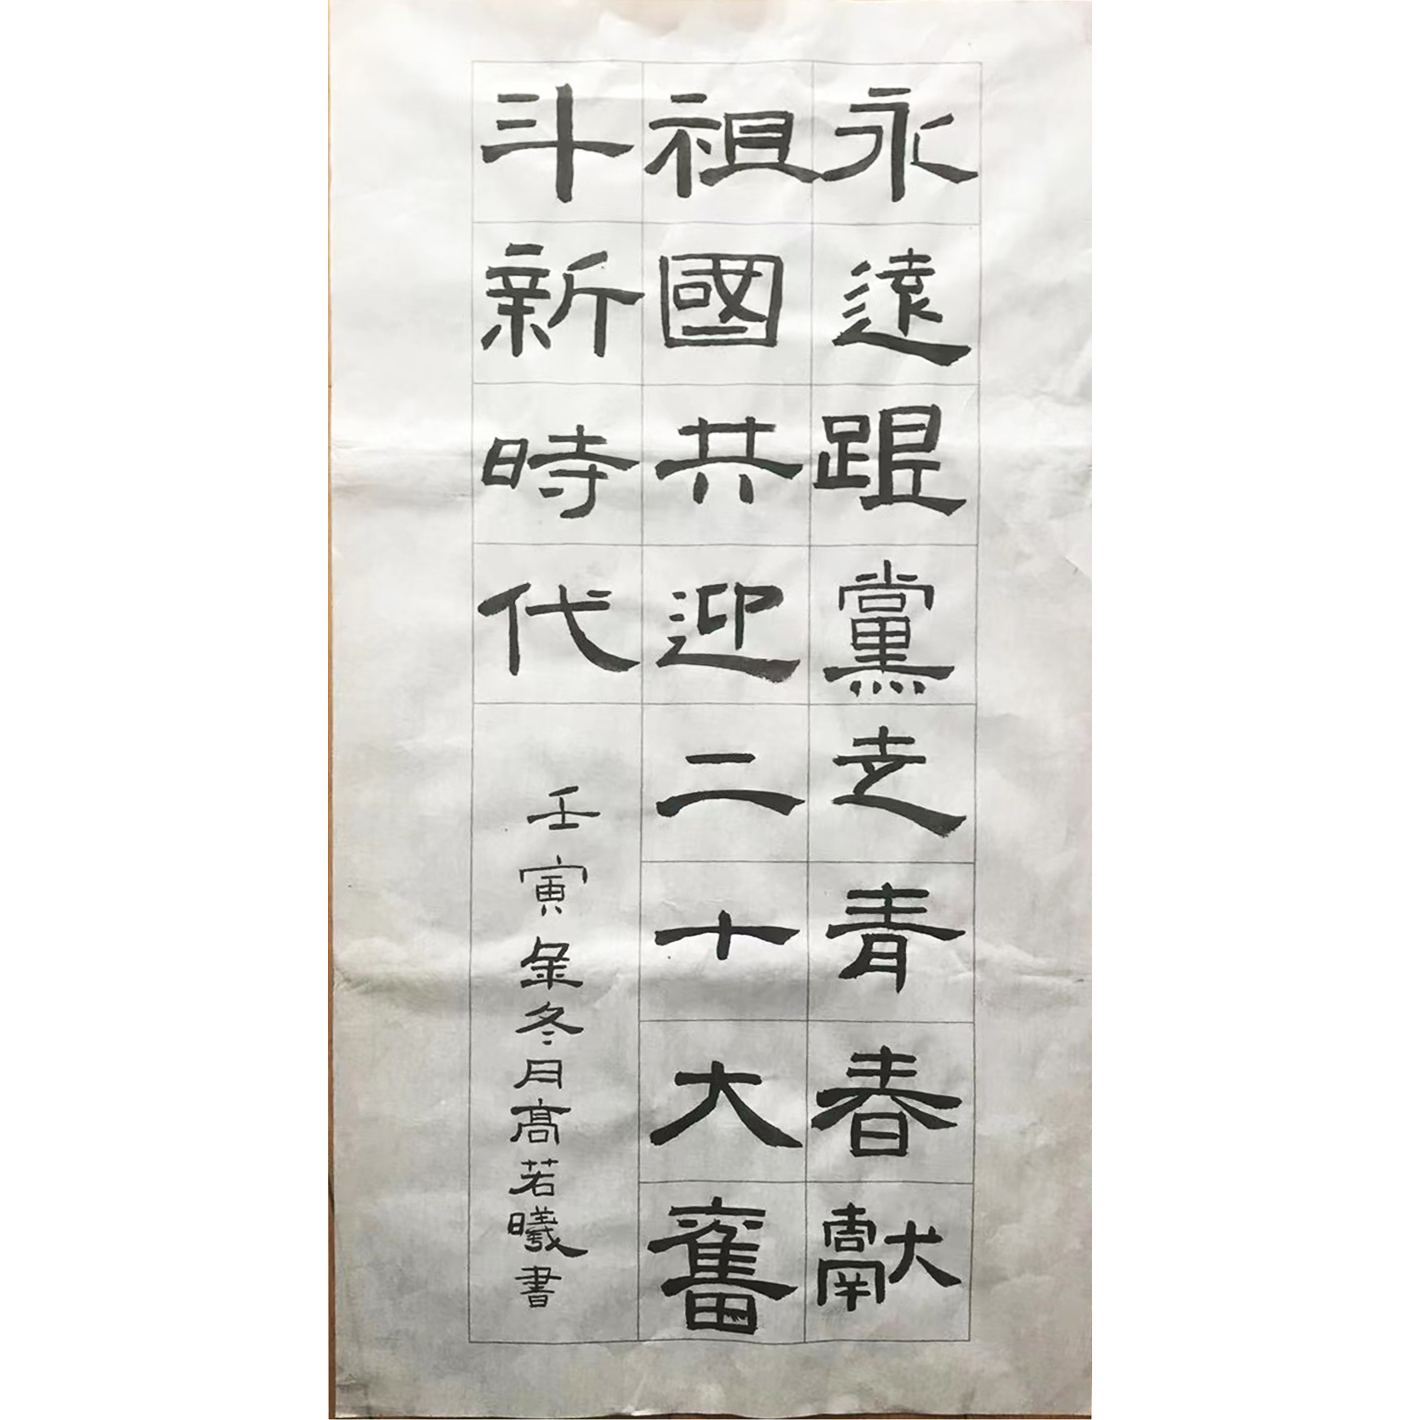 永遠跟黨走青春獻
祖國共迎二十大奮
斗新時代
壬寅年冬月高若曦書